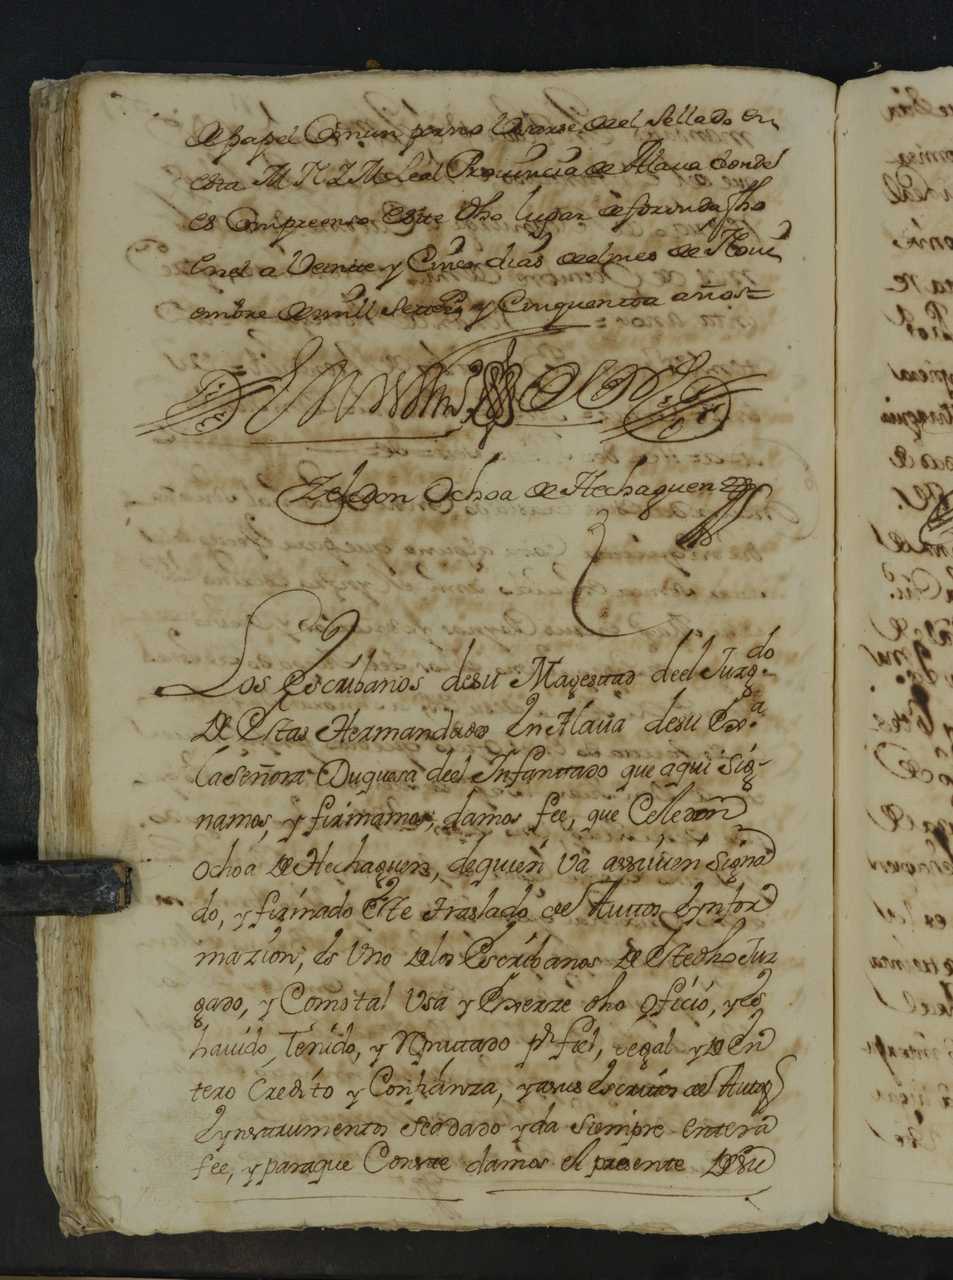 de papel Comun por no Usarse de el Sellado en
esta M N y M Leal Prouincia de Alaua donde
es Compreenso este dho lugar de foronda fho
en el a Veinte y Cinco dias de el mes de Noui
embre de mill Settez.s y Cinquenta años=
Zeledon Ochoa de Hechaguen
Los Escribanos de su Magestad de el Juzg.do
de Estas Hermandades En Alaua de su Ex.a
la Señora Duquesa de el Infantado que aqui sig-
namos, y firmamos, damos fee, que Celedon
Ochoa de Hechaguen, de quien va assi uien signa
do, y firmado Este traslado de Auttos E ynfor
mazion, es Uno de los Escribanos de Este dho Juz
gado, y Como tal Usa y Exerze dho oficio, y es
hauido, Tenido, y Reputtado p.r fiel, legal y de En
tero Credito y Confianza, y a sus Escritos de Auttos
E ynstrumentos se a dado y da siempre entera
fee, y para que Conste damos el presente de su